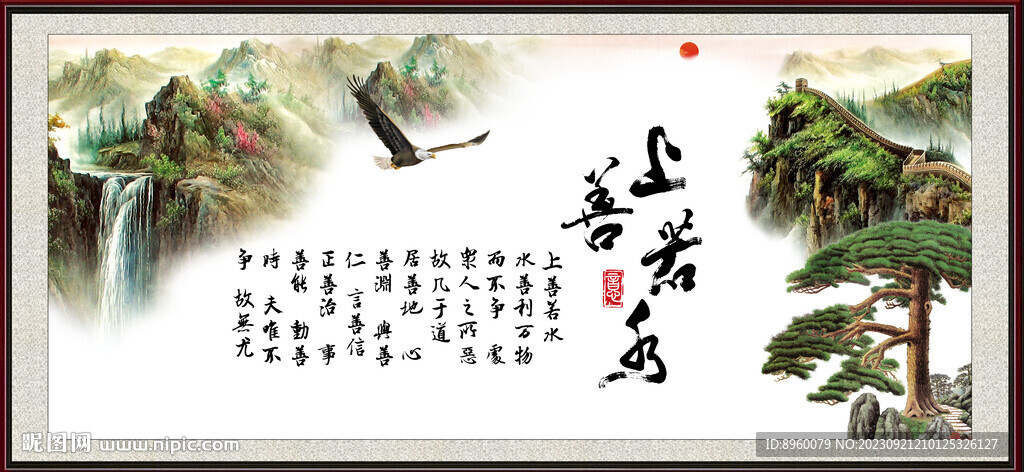 上善若水
上善若水
水善利万物
而不争 處
衆人之所惡
故几于道
居善地 心
善淵 與善
仁 言善信
正善治 事
善能 動善
時 夫唯不
争 故無尤
昵图网 www.nipic.com
ID:8960079 NO:20230921210125326127